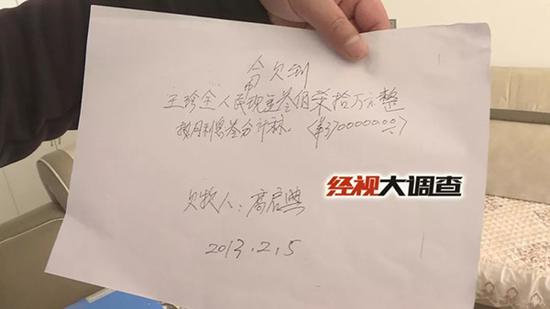 今欠到
王珍全人民现金叁佰柒拾万元整
按月利息叁分计称。(¥3700000.00)
经视大调查
欠款人:高启
2013.2.5